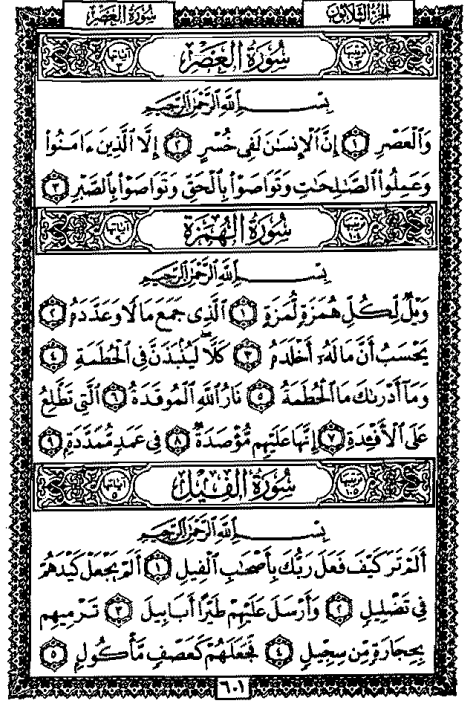 الجزء الثلاثون سُورَةُ العَصْرِ
ترتيبها ١٠٣ سُورَةُ العَصْرِ آياتها ٣
بِسْمِ ٱللَّهِ ٱلرَّحْمَٰنِ ٱلرَّحِيمِ
وَٱلْعَصْرِ ١ إِنَّ ٱلْإِنسَٰنَ لَفِى خُسْرٍ ٢ إِلَّا ٱلَّذِينَ ءَامَنُوا۟
وَعَمِلُوا۟ ٱلصَّٰلِحَٰتِ وَتَوَاصَوْا۟ بِٱلْحَقِّ وَتَوَاصَوْا۟ بِٱلصَّبْرِ ٣
ترتيبها ١٠٤ سُورَةُ الهُمَزَةِ آياتها ٩
بِسْمِ ٱللَّهِ ٱلرَّحْمَٰنِ ٱلرَّحِيمِ
وَيْلٌ لِّكُلِّ هُمَزَةٍ لُّمَزَةٍ ١ ٱلَّذِى جَمَعَ مَالًا وَعَدَّدَهُۥ ٢
يَحْسَبُ أَنَّ مَالَهُۥٓ أَخْلَدَهُۥ ٣ كَلَّا ۖ لَيُنۢبَذَنَّ فِى ٱلْحُطَمَةِ ٤
وَمَآ أَدْرَىٰكَ مَا ٱلْحُطَمَةُ ٥ نَارُ ٱللَّهِ ٱلْمُوقَدَةُ ٦ ٱلَّتِى تَطَّلِعُ
عَلَى ٱلْأَفْـِٔدَةِ ٧ إِنَّهَا عَلَيْهِم مُّؤْصَدَةٌ ٨ فِى عَمَدٍ مُّمَدَّدَةٍۭ ٩
ترتيبها ١٠٥ سُورَةُ الفِيلِ آياتها ٥
بِسْمِ ٱللَّهِ ٱلرَّحْمَٰنِ ٱلرَّحِيمِ
أَلَمْ تَرَ كَيْفَ فَعَلَ رَبُّكَ بِأَصْحَٰبِ ٱلْفِيلِ ١ أَلَمْ يَجْعَلْ كَيْدَهُمْ
فِى تَضْلِيلٍ ٢ وَأَرْسَلَ عَلَيْهِمْ طَيْرًا أَبَابِيلَ ٣ تَرْمِيهِم
بِحِجَارَةٍ مِّن سِجِّيلٍ ٤ فَجَعَلَهُمْ كَعَصْفٍ مَّأْكُولٍۭ ٥
٦٠١